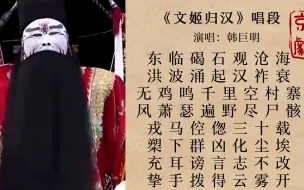 《文姬归汉》唱段
演唱：韩巨明
东临碣石观沧海
洪波涌起汉祚衰
无鸡鸣千里空村寨
风萧瑟遍野尽尸骸
戎马倥偬三十载
槊下群凶化尘埃
充耳谤言志不改
挚手拨得云雾开
京劇